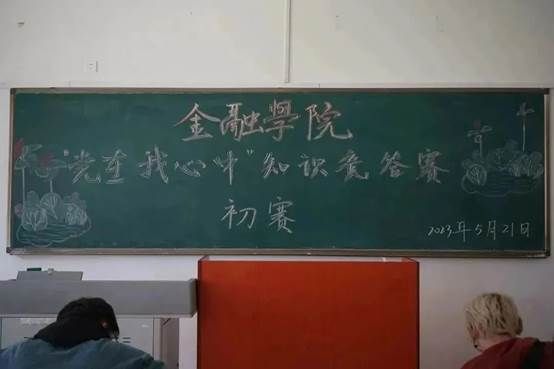 金融學院
"党在我心中"知识竞答赛
初赛
2023年5月21日